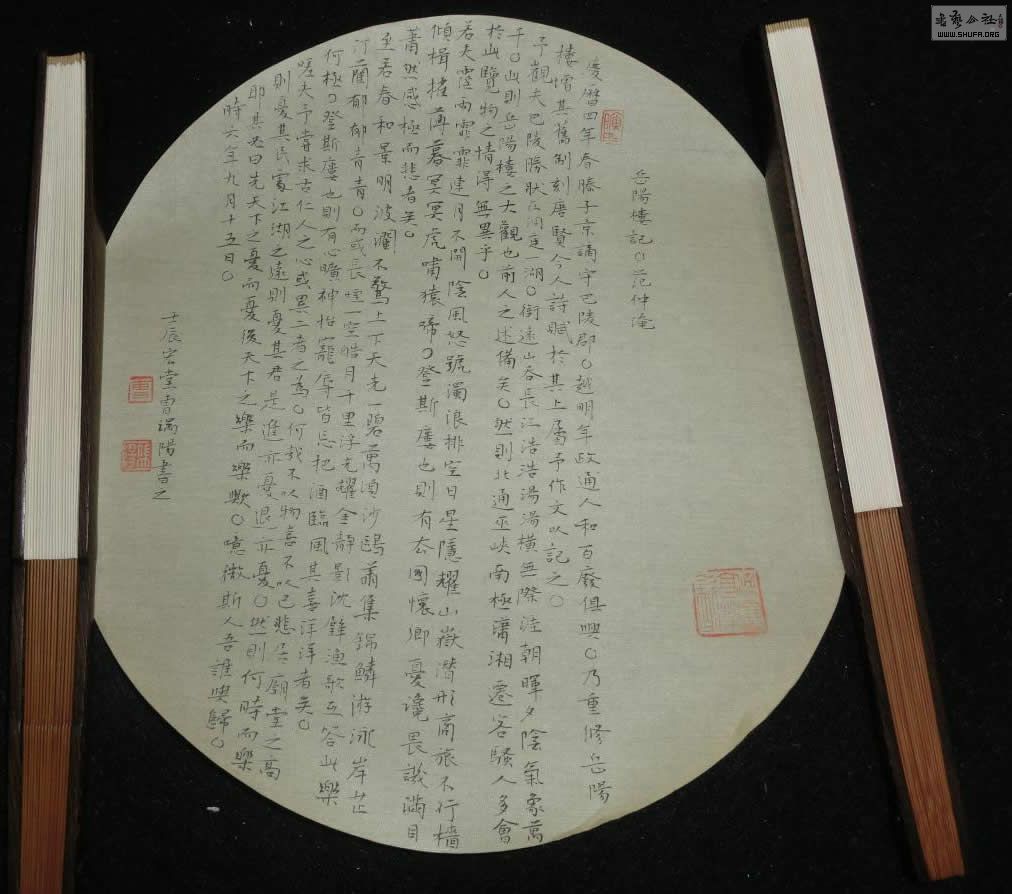 岳陽樓記〇范仲淹
慶曆四年春滕子京謫守巴陵郡〇越明年政通人和百廢俱興〇乃重修岳陽
樓增其舊制刻唐賢今人詩賦於其上屬予作文以記之〇
予觀夫巴陵勝狀在洞庭一湖〇銜遠山吞長江浩浩湯湯橫無際涯朝暉夕陰氣象萬
千〇此則岳陽樓之大觀也前人之述備矣〇然則北通巫峽南極瀟湘遷客騷人多會
於此覽物之情得無異乎〇
若夫霪雨霏霏連月不開陰風怒號濁浪排空日星隱耀山嶽潛形商旅不行檣
傾楫摧薄暮冥冥虎嘯猿啼〇登斯樓也則有去國懷鄉憂讒畏譏滿目
蕭然感極而悲者矣〇
至若春和景明波瀾不驚上下天光一碧萬頃沙鷗翔集錦鱗游泳岸芷
汀蘭郁郁青青〇而或長煙一空皓月千里浮光耀金靜影沈璧漁歌互答此樂
何極〇登斯樓也則有心曠神怡寵辱皆忘把酒臨風其喜洋洋者矣〇
嗟夫予嘗求古仁人之心或異二者之為〇何哉不以物喜不以己悲居廟堂之高
則憂其民處江湖之遠則憂其君是進亦憂退亦憂〇然則何時而樂
耶其必曰先天下之憂而憂後天下之樂而樂歟〇噫微斯人吾誰與歸〇
時六年九月十五日〇
壬辰宏堂曹端陽書之
WWW.SHUFA.ORG